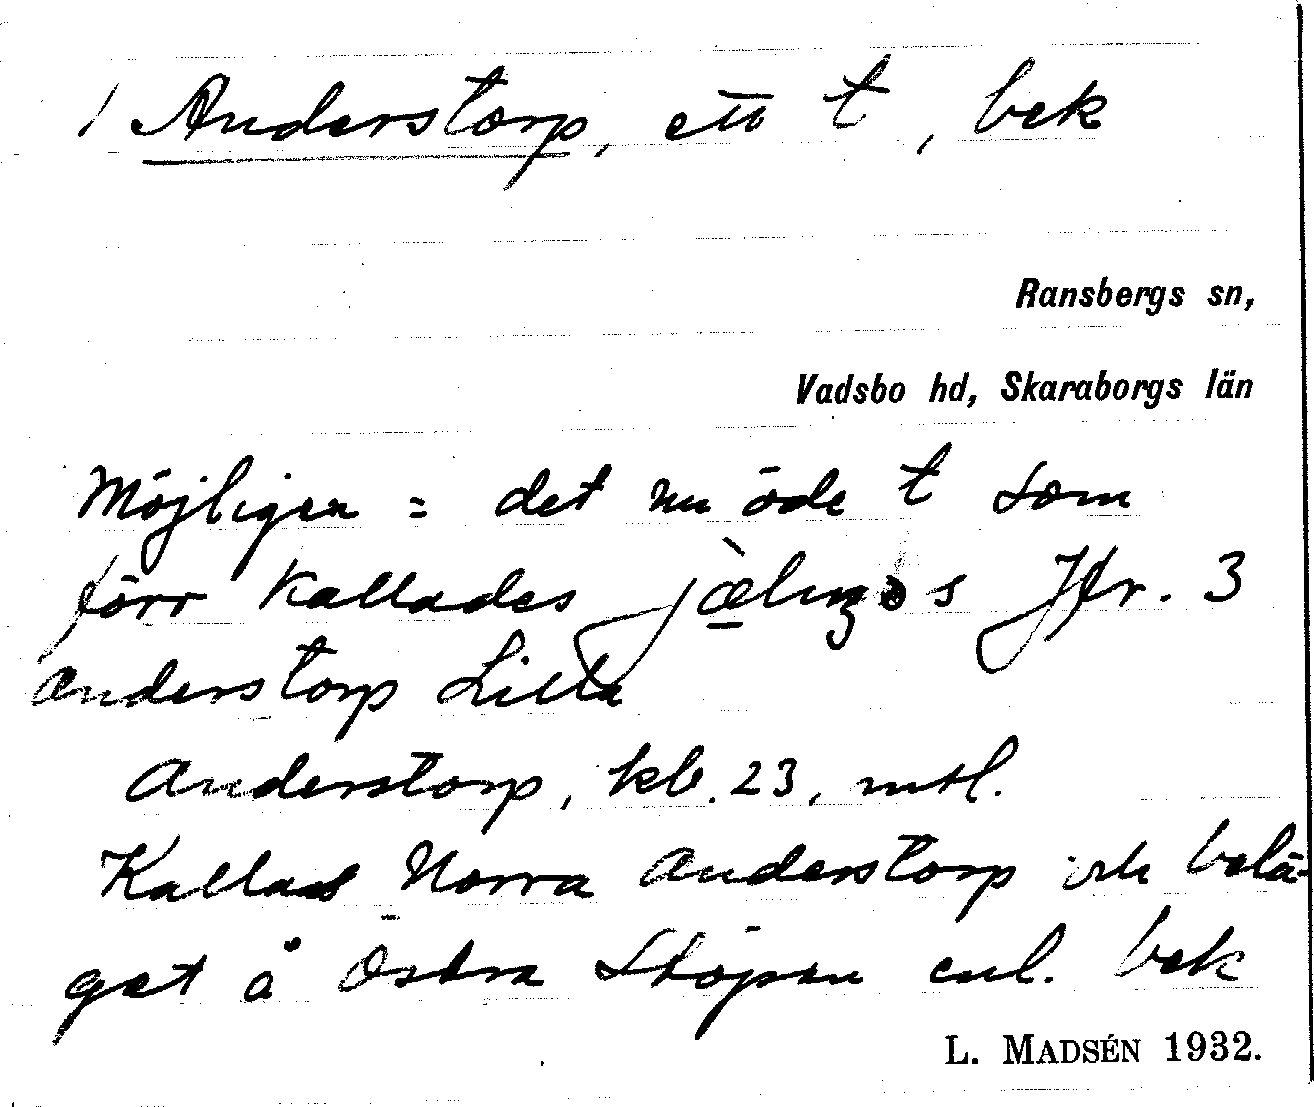 1 Anderstorp, ett t, bek
Ransbergs sn,
Vadsbo hd, Skaraborgs län
Möjligen = det nu öde t som
förr kallades Jfr. 3
Anderstorp Lilla
Anderstorp, kb. 23, mtl.
Kallas Norra Anderstorp och belä-
get å Östra Stöpen enl. bek
L. MADSÉN 1932.